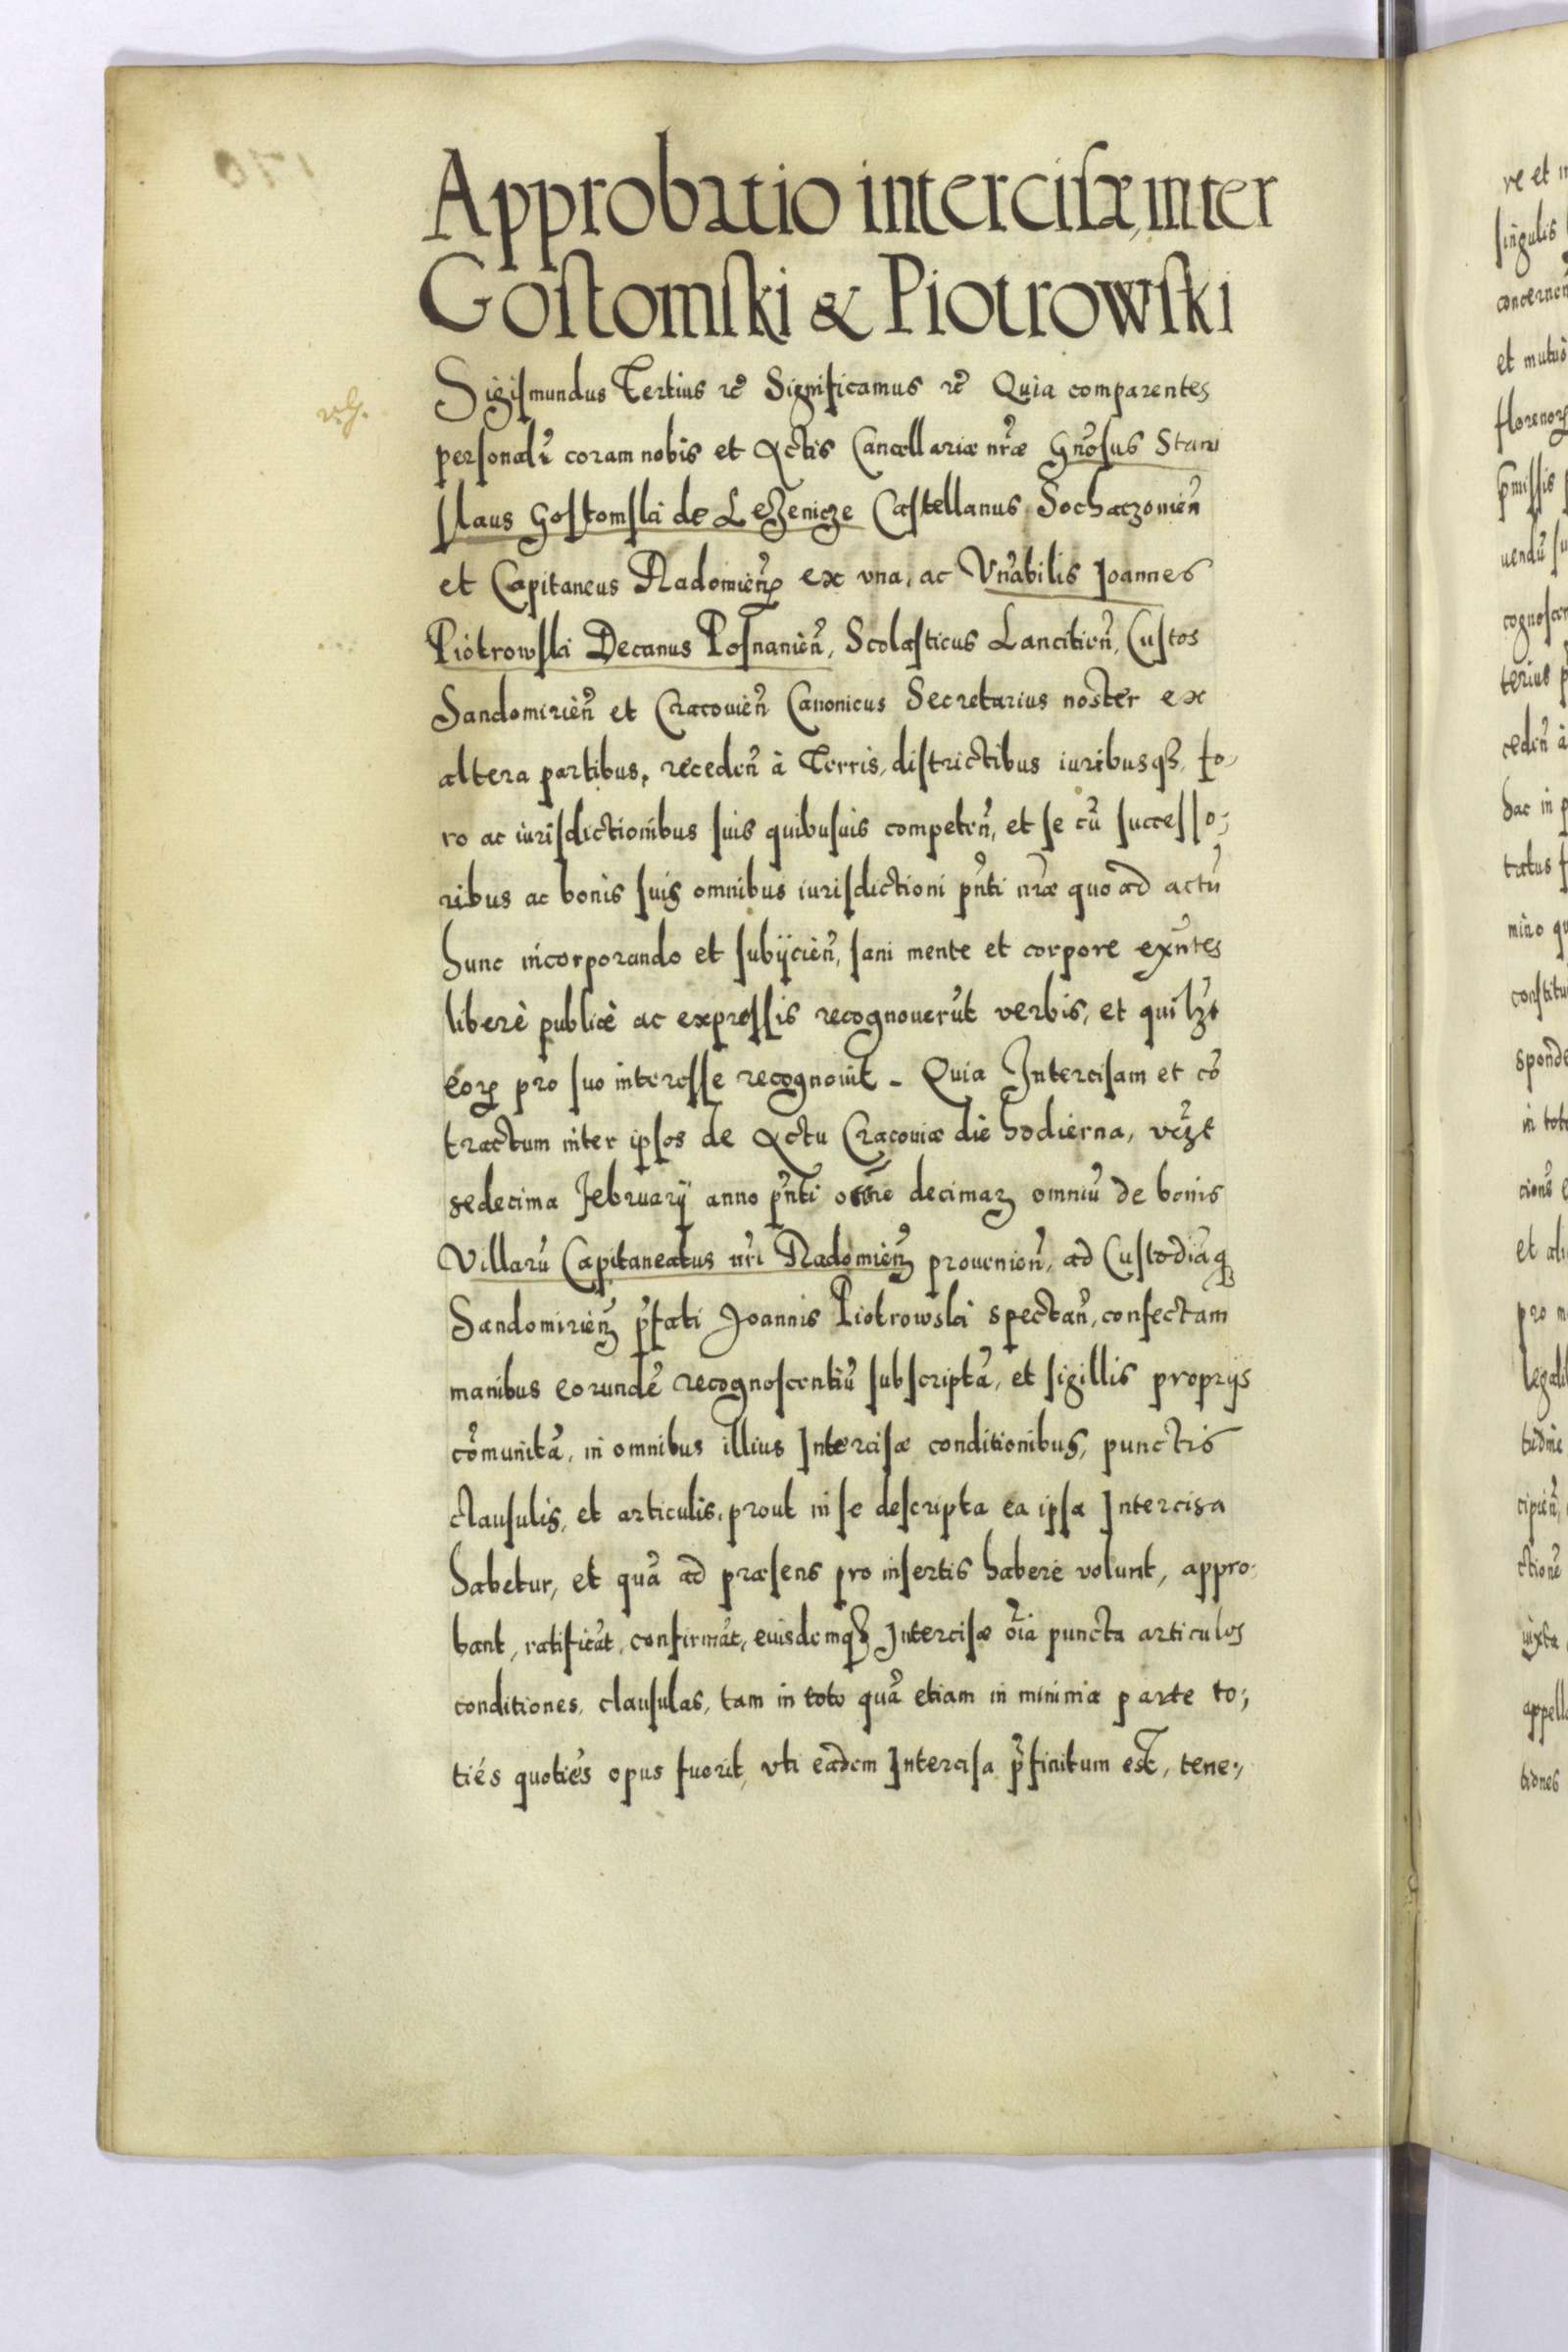 Approbatio intercisæ, inter
Gostomski & Piotrowski
Sigismundus Tertius rc̃ Significamus rc̃ Quia comparentes
personalr̃ coram nobis et Actis Cancellariæ nr̃æ Gnõsus Stani
slaus Gostomski de Lezenicze Castellanus Sochaczouien̄
et Capitaneus Radomien̄ ex vna, ac Vnr̃abilis Joannes
Piotrowski Decanus Posnanien̄, Scolasticus Lancitien̄, Custos
Sandomirien̄ et Cracouien̄ Canonicus Secretarius noster ex
altera partibus, receden̄ à Terris, districtibus iuribusq3, fo-
ro ac iurisdictionibus suis quibusuis competen̄, et se cũ successo-;
ribus ac bonis suis omnibus iurisdictioni pñti nr̃æ quo ad actũ
hunc incorporando et subijcien̄, sani mente et corpore exñtes
liberè publicè ac expressis recognouerũt verbis, et quilz̃t
eorꝝ pro suo interesse recognouit - Quia Intercisam et cõ
tractum inter ipsos de Actu Cracouiæ die hodierna, vez̃t
sedecima Februarij anno pñti decimaꝝ omniũ de bonis
Villarũ Capitaneatus nr̃i Radomien̄ prouenien̄, ad Custodiãq3
Sandomirien̄ p̃fati Joannis Piotrowski spectan̄, confectam
manibus eorundẽ recognoscentiũ subscriptã, et sigillis proprijs
cõmunitã, in omnibus illius Intercisæ conditionibus, punctis
clausulis, et articulis, prout in se descripta ea ipsa Intercisa
habetur, et quã ad præsens pro insertis habere volunt, appro-
bant, ratificãt, confirmãt, euisdemq3 Intercisæ õia puncta articulos
conditiones, clausulas, tam in toto quã etiam in minima parte to-;
tiés quotiés opus fuerit, vti eadem Intercisa p̃finitum est, tene-;